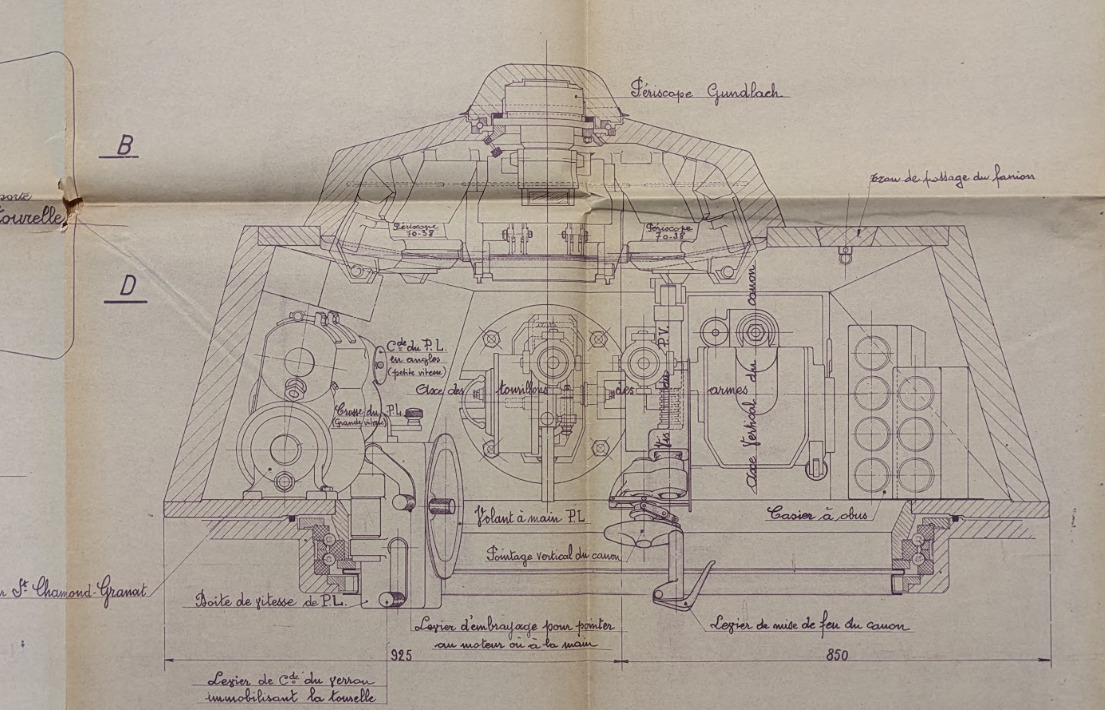 Périscope Gundlach
B
Écrou de passage du fanion
porte
tourelle
Périscope
70-38
Périscope
70-38
D
Cde du P.L.
en angles
(petite vitesse)
Axe des tourillons des armes
Crosse du P.L.
(Grande vitesse)
Vis du P.V.
Axe Vertical du canon
Volant à main P.L
Casier à obus
Pointage vertical du canon
St Chamond-Granat
Boite de vitesse de P.L.
Levier d'embrayage pour pointer
au moteur où à la main
Levier de mise de feu du canon
925
850
Levier de Cde du verrou
immobilisant la tourelle